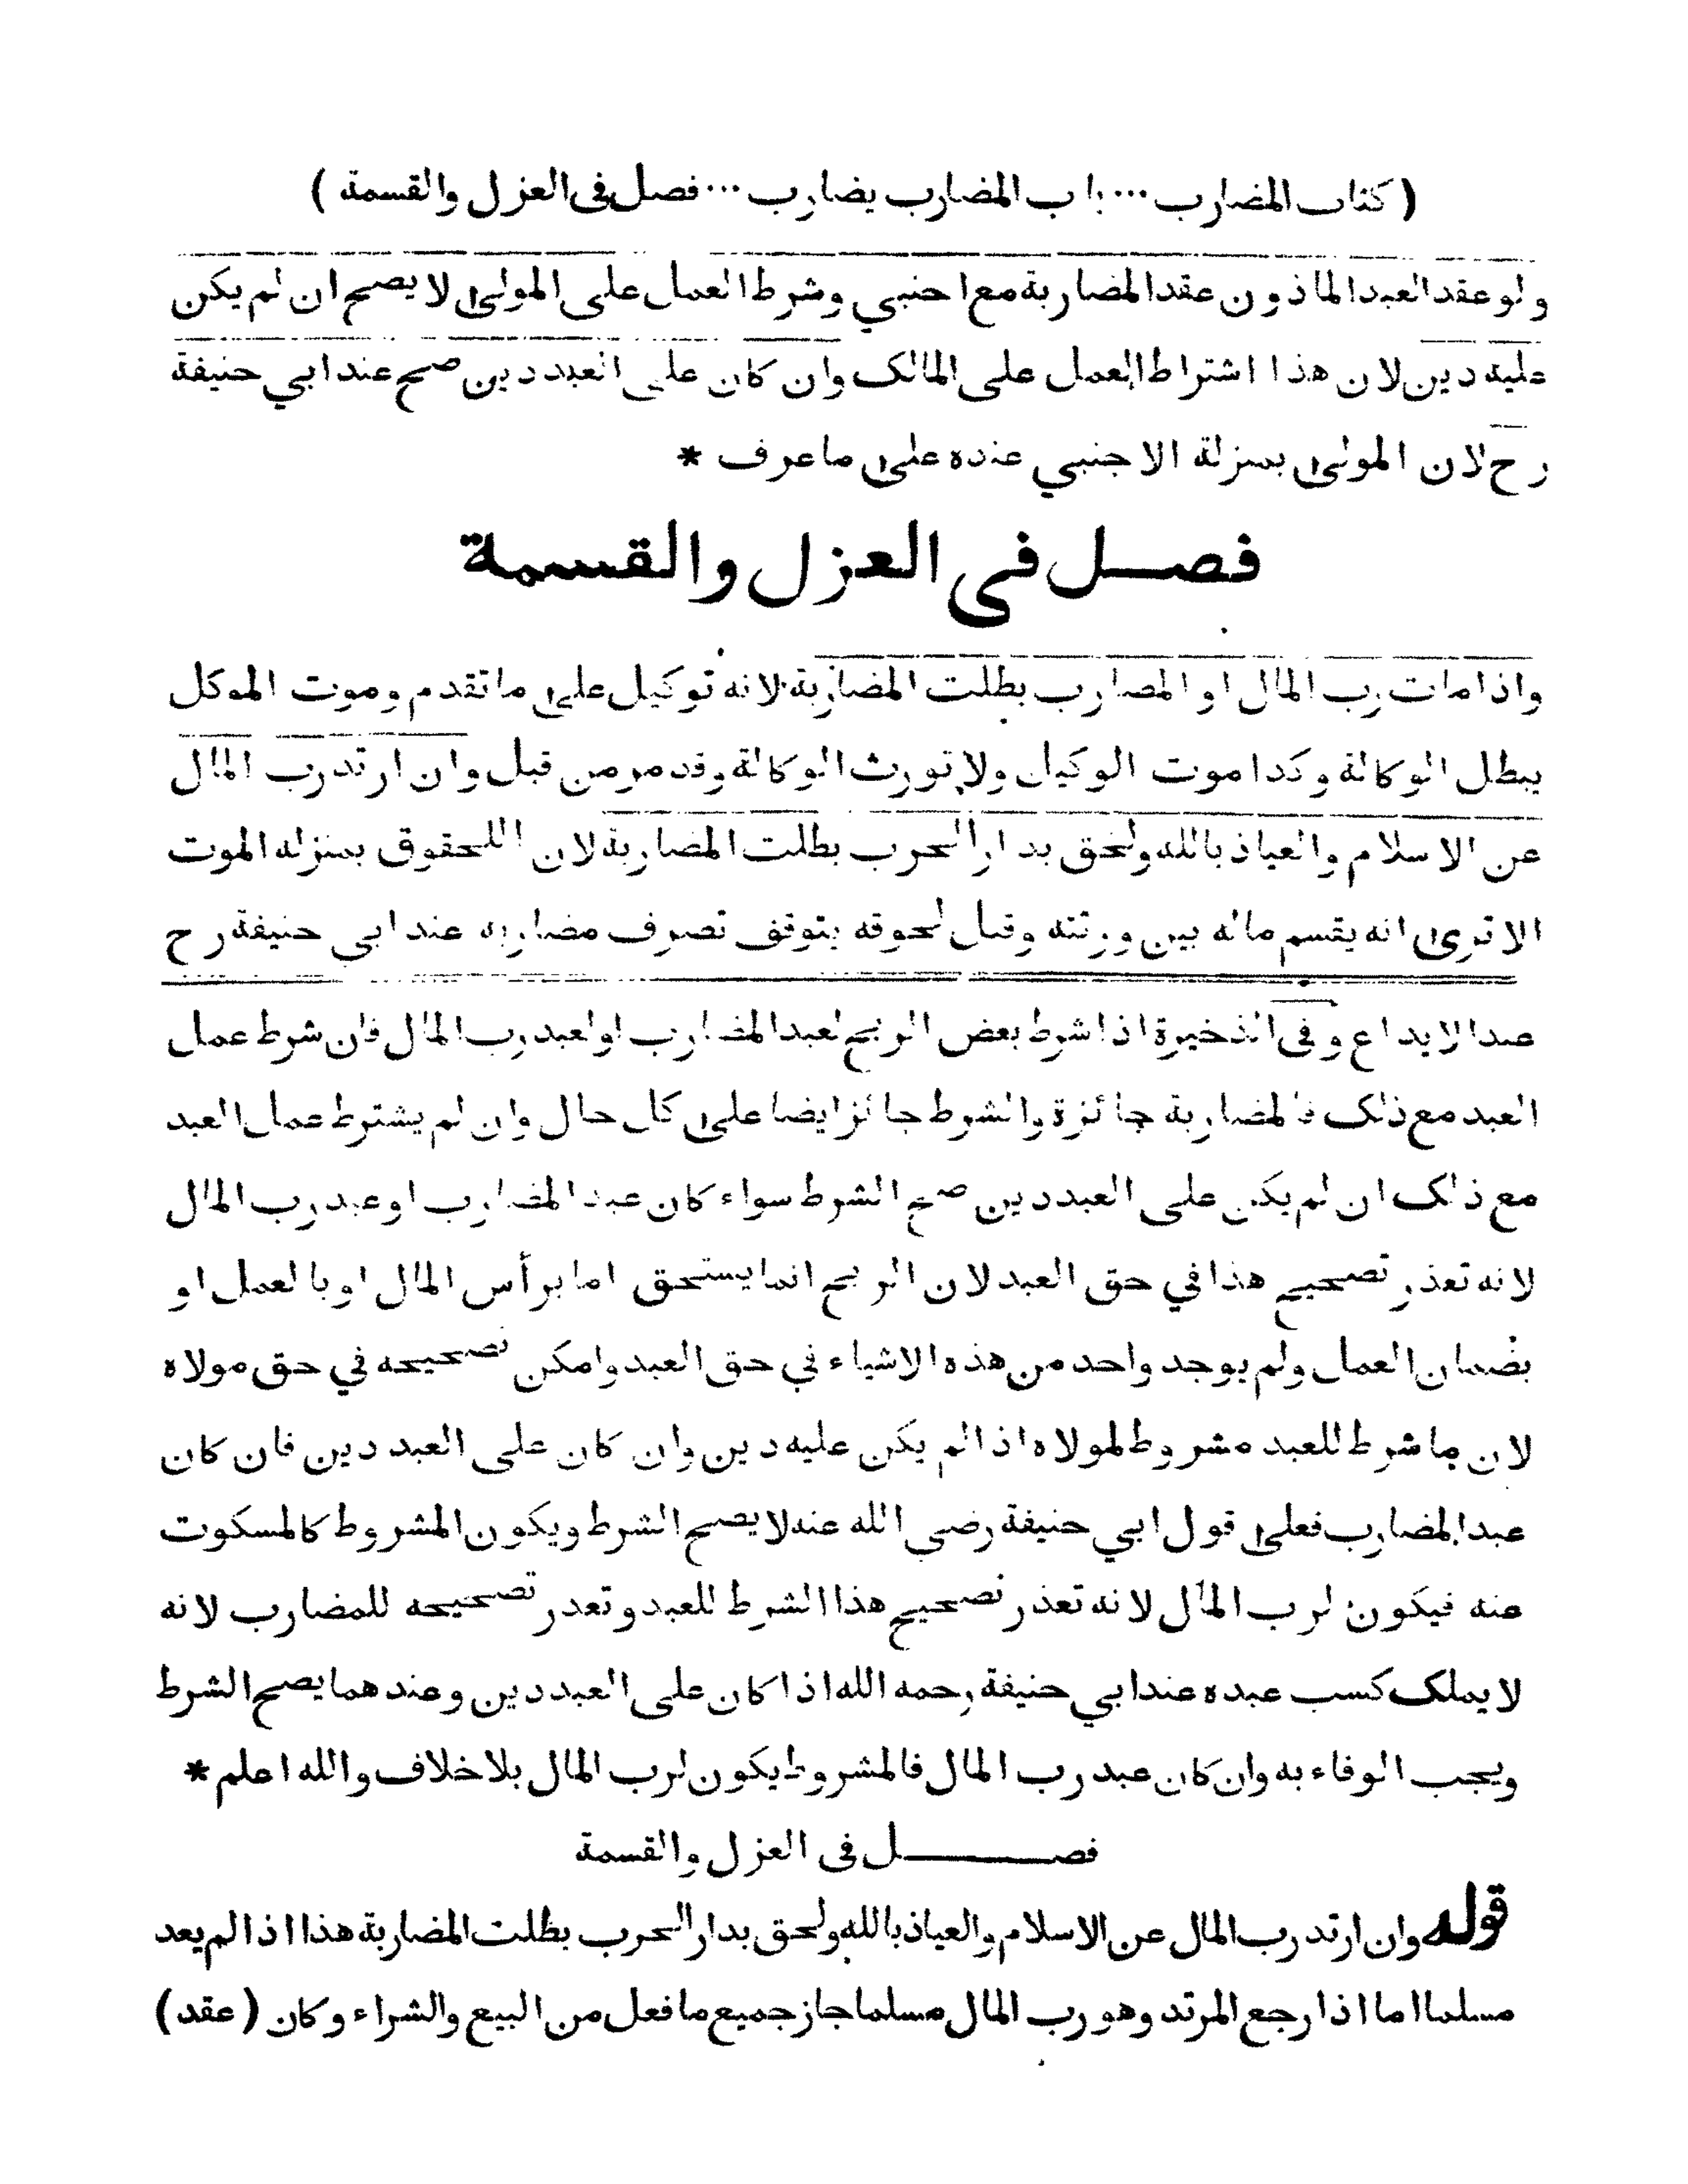 ( كتاب المضارب ... باب المضارب يضارب ... فصل فى العزل والقسمة )
ولو عقد العبد الماذون عقد المضاربة مع اجنبي وشرط العمل على المولى لا يصح ان لم يكن
عليه دين لان هذا اشتراط العمل على المالك وان كان على العبد دين صح عند ابي حنيفة
رح لان المولى بمنزلة الاجنبي عنده على ما عرف *
فصل فى العزل والقسمة
واذا مات رب المال او المضارب بطلت المضاربة لانه توكيل على ما تقدم وموت الموكل
يبطل الوكالة وكذا موت الوكيل ولا تورث الوكالة وقد مر من قبل وان ارتد رب المال
عن الاسلام والعياذ بالله ولحق بدار الحرب بطلت المضاربة لان اللحقوق بمنزله الموت
الا ترى انه يقسم ماله بين ورثته وقبل لحوقه يتوقف تصرف مضاربه عند ابى حنيفة رح
صدا لايداع وفى الذخيرة اذا شرط بعض الربح لعبد المضارب او لعبد رب المال فان شرط عمل
العبد مع ذلك فالمضاربة جائزة والشرط جائز ايضا على كل حال وان لم يشترط عمل العبد
مع ذلك ان لم يكن على العبد دين صح الشرط سواء كان عبد المضارب او عبد رب المال
لانه تعذر تصحيح هذا في حق العبد لان الربح انما يستحق اما برأس المال او بالعمل او
بضمان العمل ولم يوجد واحد من هذه الاشياء في حق العبد وامكن تصحيحه في حق مولاه
لان ما شرط للعبد مشروط لمولاه اذا لم يكن عليه دين وان كان على العبد دين فان كان
عبد المضارب فعلى قول ابي حنيفة رضى الله عنه لا يصح الشرط ويكون المشروط كالمسكوت
عنه فيكون لرب المال لانه تعذر تصحيح هذا الشرط للعبد وتعذر تصحيحه للمضارب لانه
لا يملك كسب عبده عند ابي حنيفة رحمه الله اذا كان على العبد دين وعندهما يصح الشرط
ويجب الوفاء به وان كان عبد رب المال فالمشروط يكون لرب المال بلا خلاف والله اعلم *
فصل فى العزل والقسمة
قوله وان ارتد رب المال عن الاسلام والعياذ بالله ولحق بدار الحرب بطلت المضاربة هذا اذا لم يعد
مسلما اما اذا رجع المرتد وهو رب المال مسلما جاز جميع ما فعل من البيع والشراء وكان ( عقد )